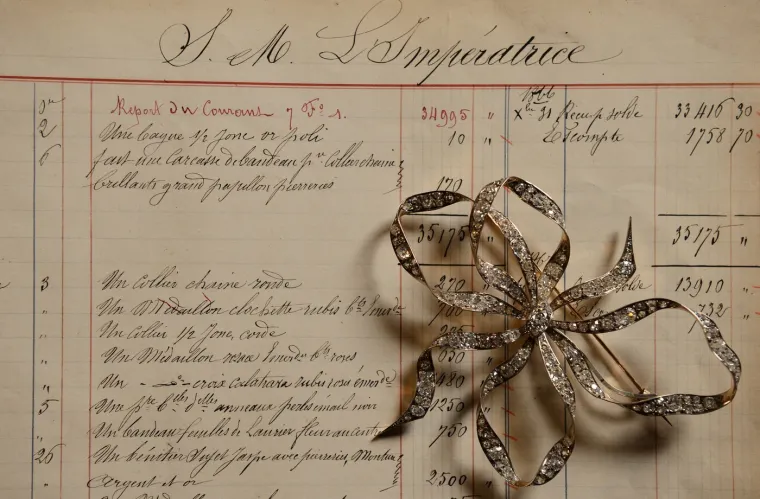 S. M. L'Impératrice
Report du Courant 7 Fo 1. 34995 "
Xbre 31 Récup solde 33416 30
2 Une bague 1/2 Jonc or poli 10 "
Escompte 1758 70
6 fait une Carcasse de bandeau pr Collier chaine
brillants grand papillon pierreries 170
35175 " 35175 "
3 Un Collier chaine ronde 270 " 13910 "
" Un Médaillon clochette rubis 732 "
" Un Collier 1/2 Jonc, corde
" Un Médaillon roses
" Un croix calatrava rubis roses 480
5 Une pre blles d'elles anneaux perles émail noir 1250
" Un bandeau feuilles de Laurier fleur au centre 750
26 Un bénitier Sujet Jaspe avec pierreries, Monture
argent et or 2500